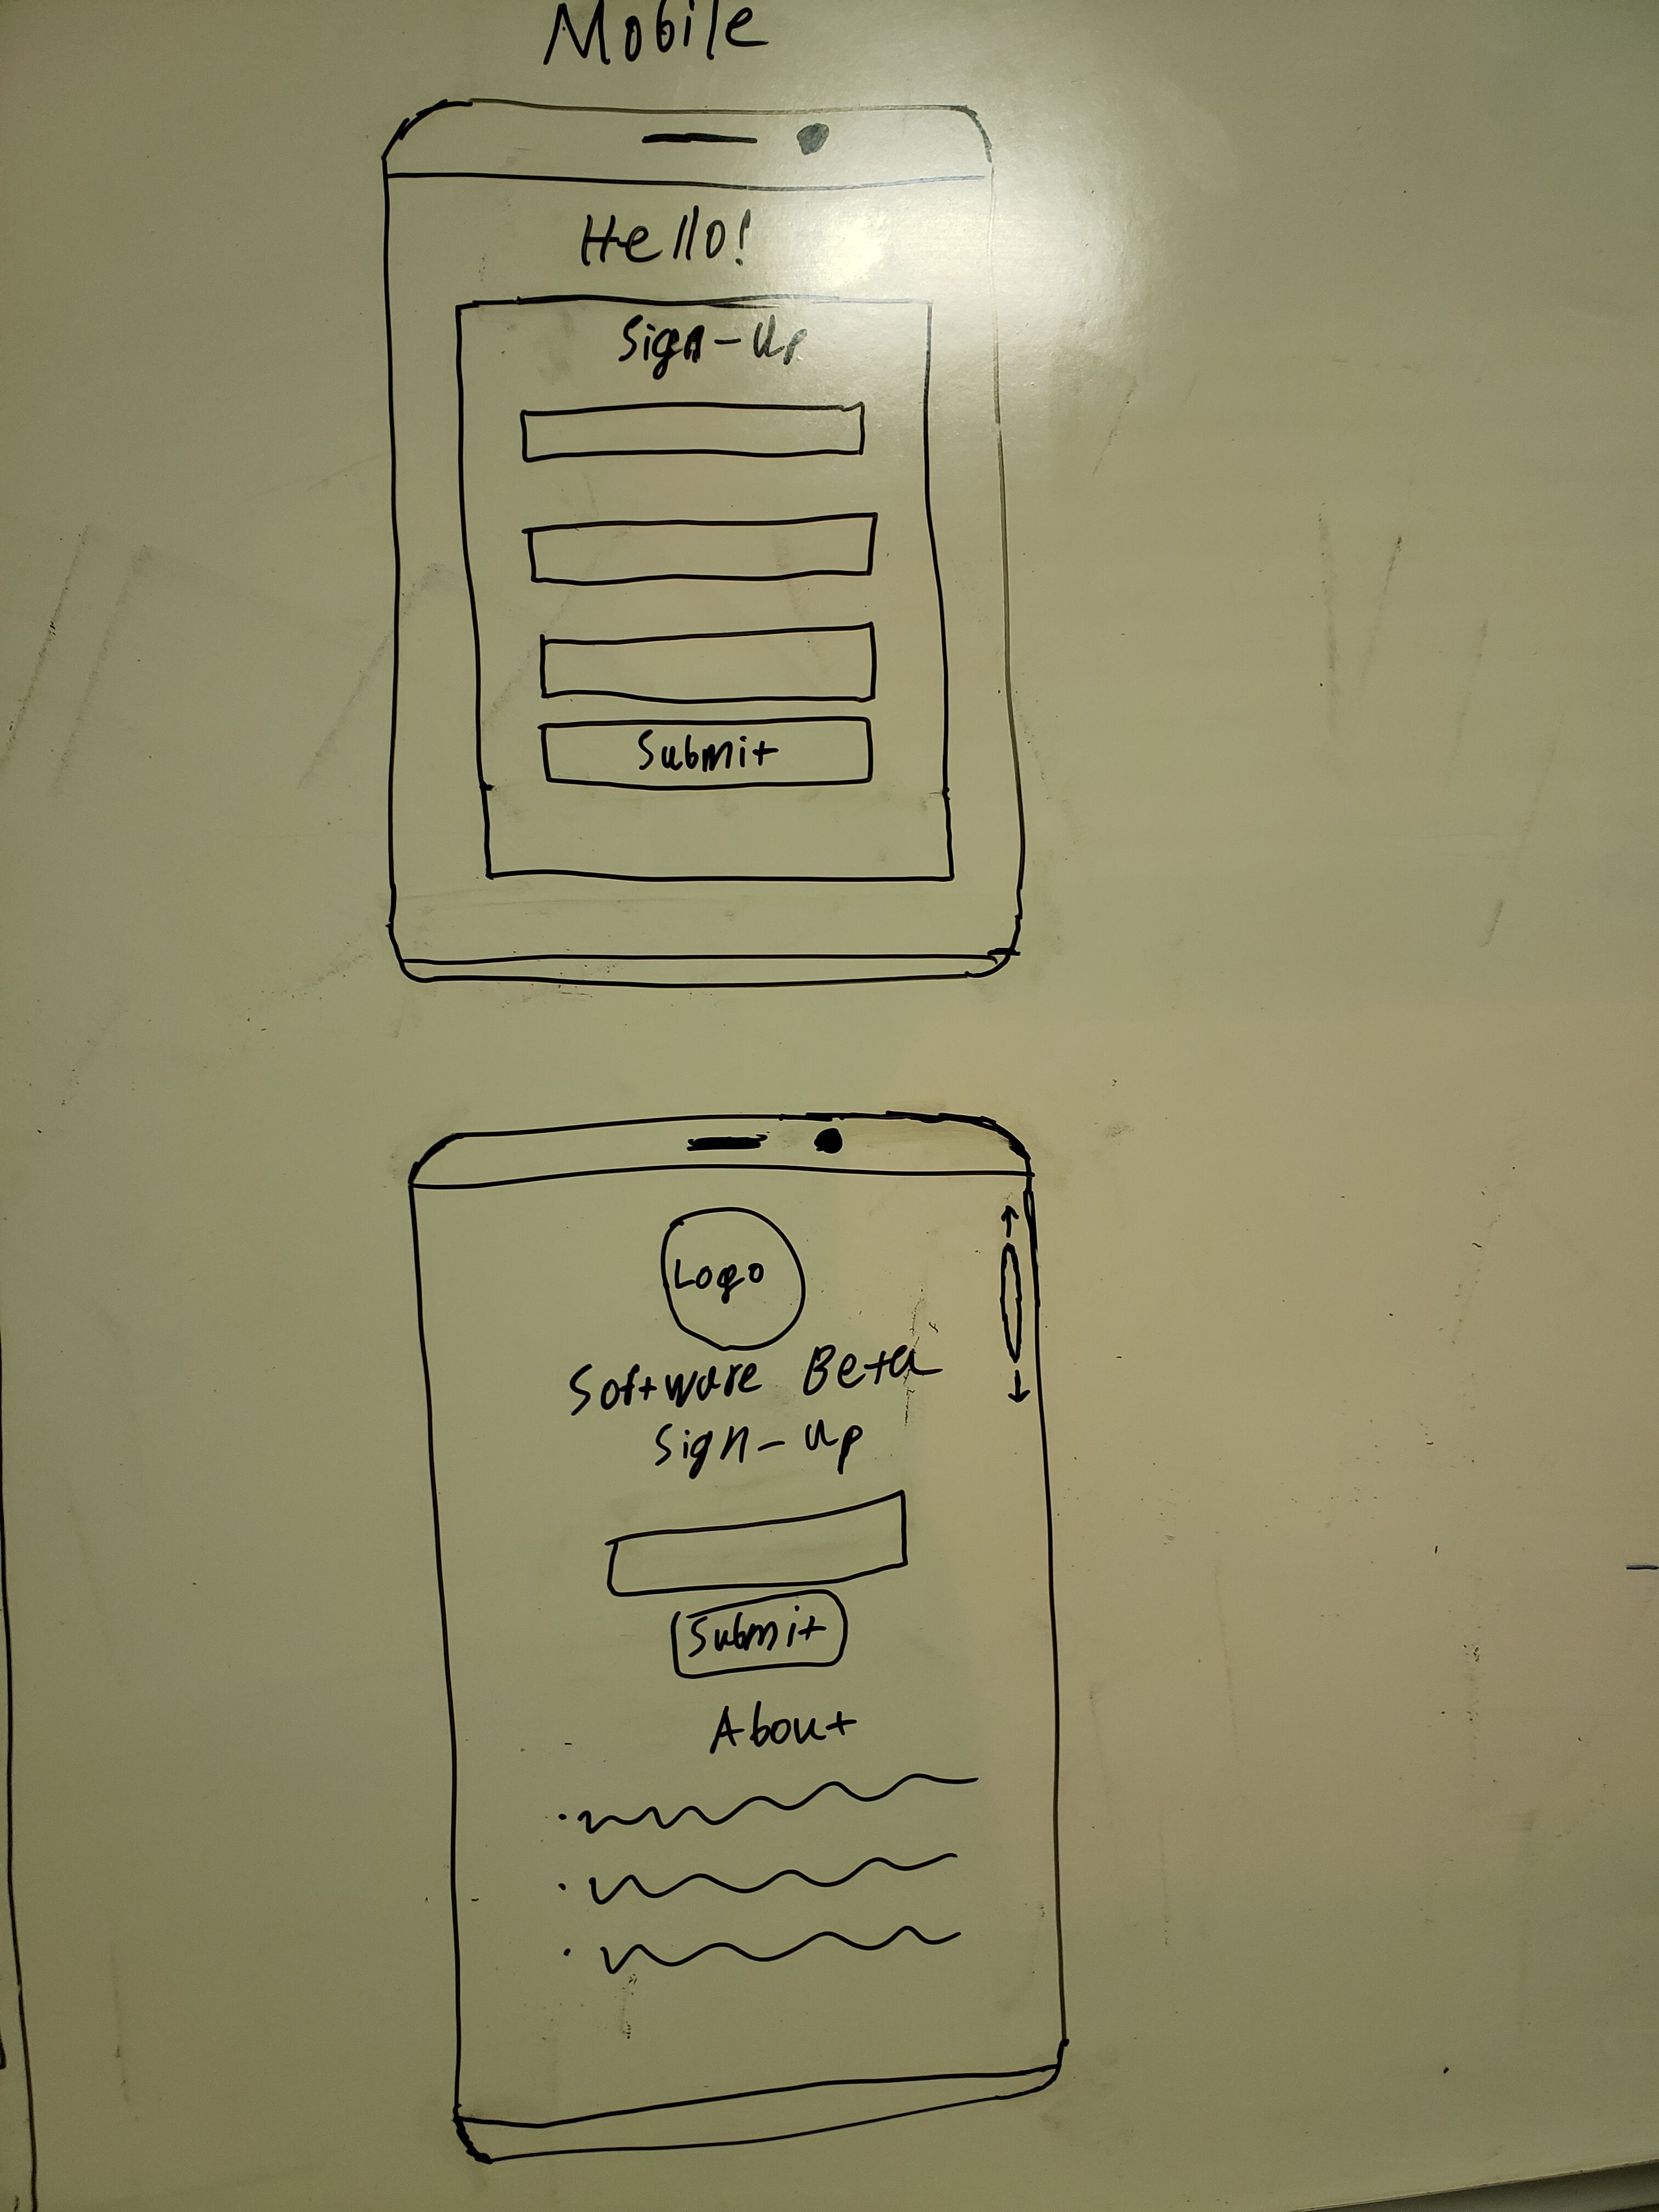 Mobile
Hello!
Sign-Up
Submit
Logo
Software Beta
Sign-Up
Submit
About